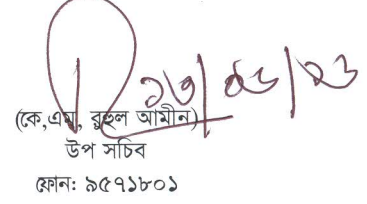 ১৩/০৬/২৩
(কে,এম, রুহুল আমীন)
উপ সচিব
ফোন: ৯৫৭১৮০১